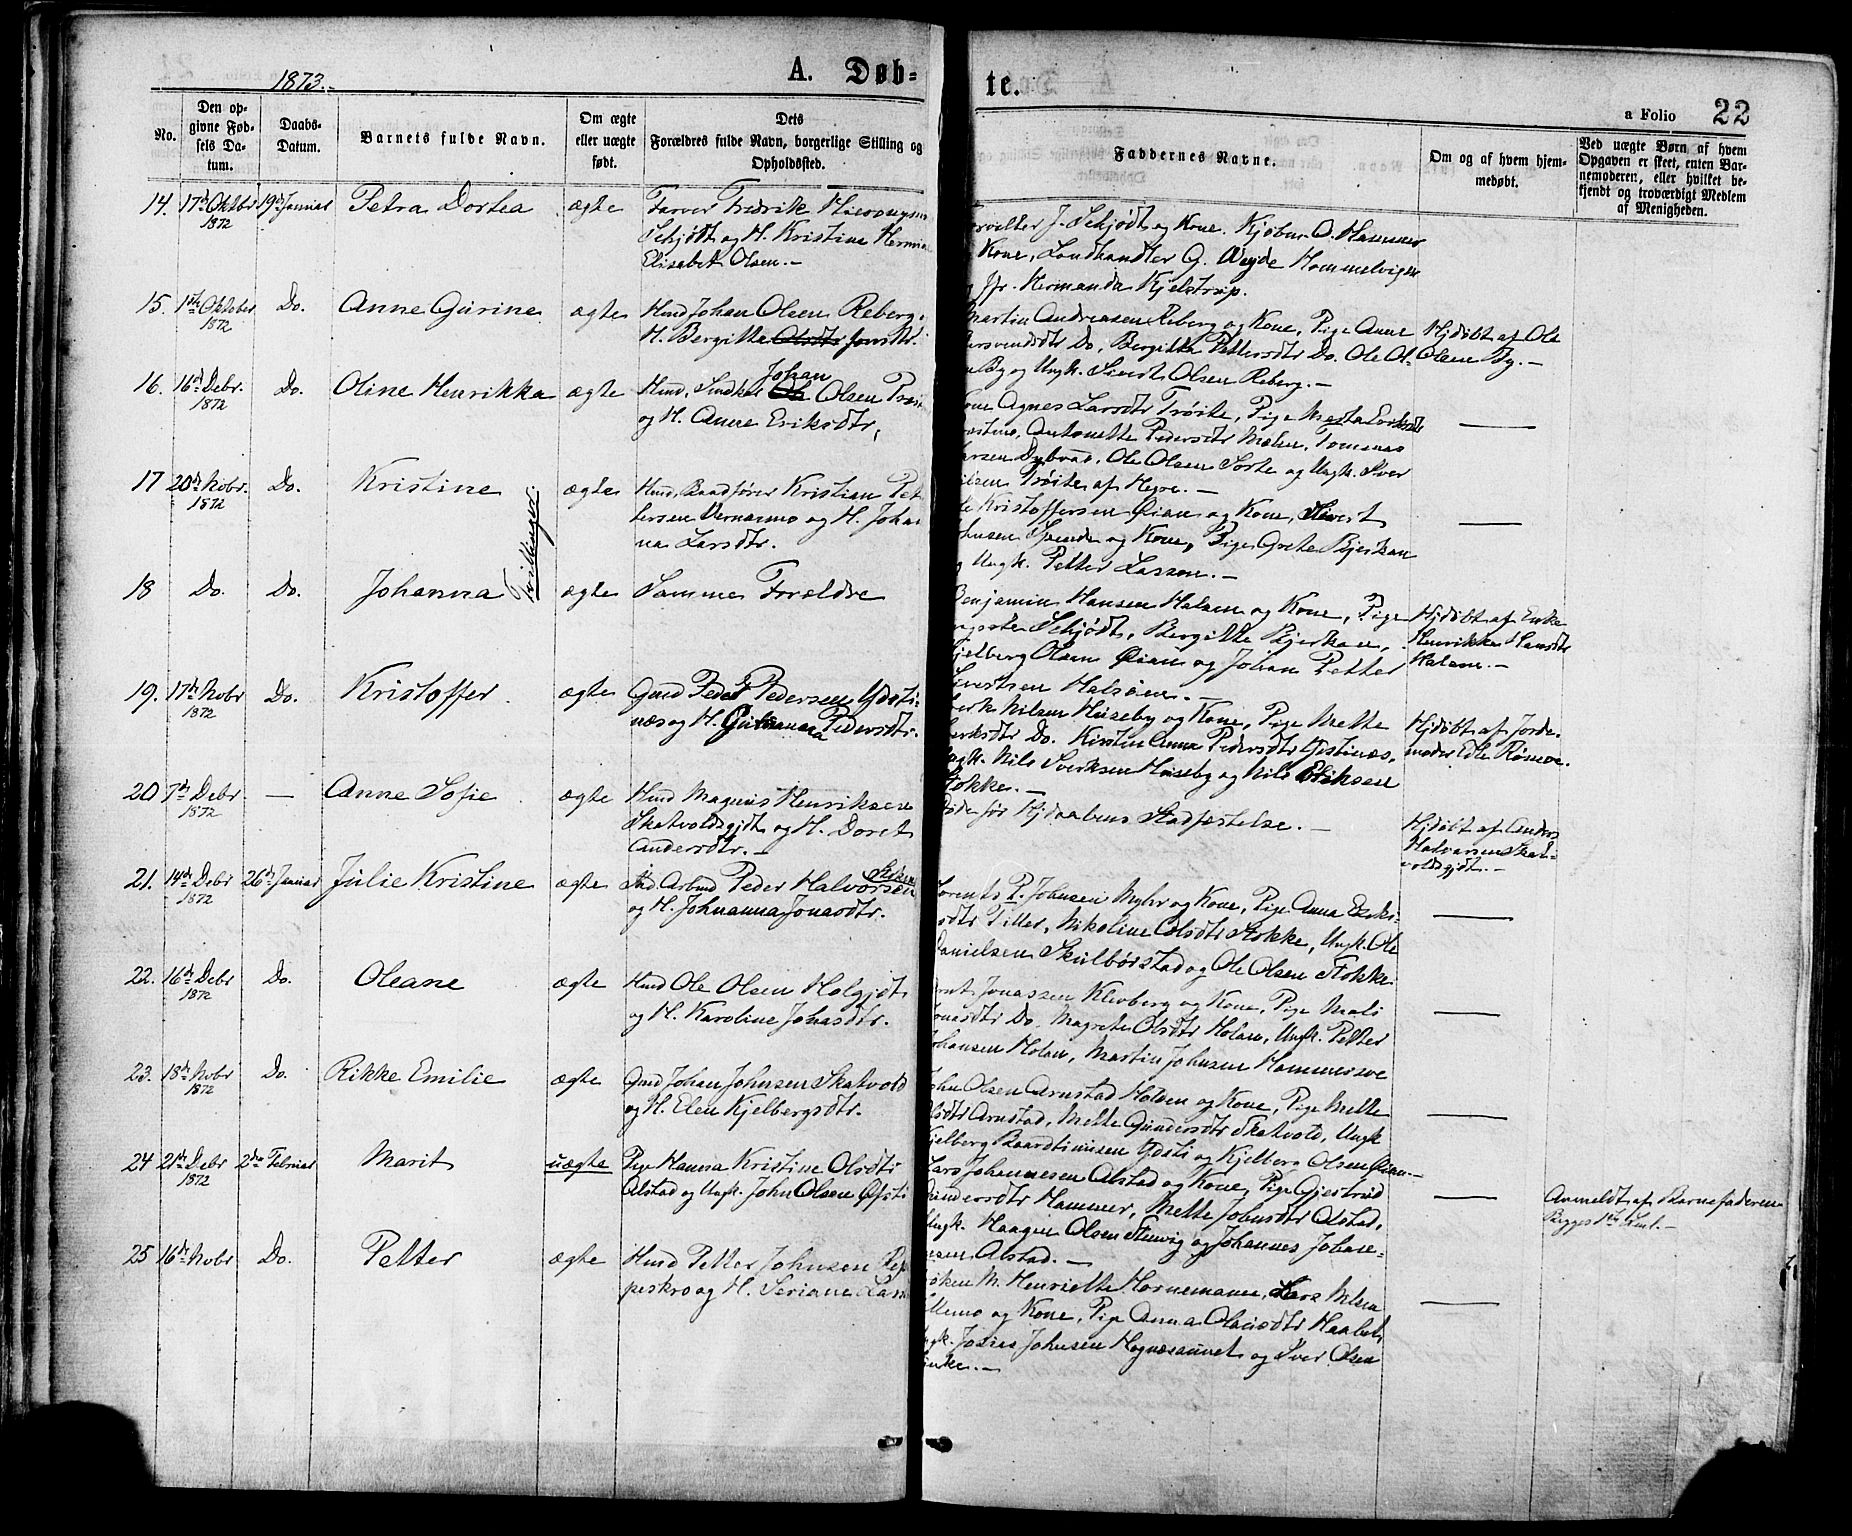 1873.
A. Døb=
te.
a Folio 22
No.
Den op-
givne Fød-
sels Da-
tum.
Daabs-
Datum.
Barnets fulde Navn.
Om ægte
eller uægte
født.
Dets
Forældres fulde Navn, borgerlige Stilling og
Opholdssted.
Faddernes Navne.
Om og af hvem hjem-
medøbt.
Ved uægte Børn af hvem
Opgaven er skeet, enten Bar-
nemoderen, eller hvilket be-
kjendt og troværdigt Medlem
af Menigheden.
14. 17de Oktbr 1872 19de Januar Petra Dortea ægte
Farver Fredrik
Schjødt og H. Kristine
Elisabet Olsen.-
J. Schjødt og Kone. O. Hammer
Kone, Landhandler G. Hommelvigen
Jfr. Hermanda Kjelstrup.
15. 1ste Oktober 1872 Do. Anne Gurine ægte
Hmd Johan Olsen Reberg.
H. Bergitte
Martin Andreasen Reberg og Kone, Pige Anne
Do, Bergitte Pettersdtr Do. Ole Ol-
By og Ungk. Sivert Olsen Reberg.-
Hjdøbt af Ole
Olsen By.-
16. 16de Debr. 1872 Do. Oline Henrikka ægte
Hmd, Johan Olsen
og H. Anne Eriksdtr,
Kone Agnes Larsdtr Trøite, Pige
Antonette Pedersdtr Tomenas
Ole Olsen Sorte og Ungk. Iver
Trøite af Hegre.-
17 20de Nobr. 1872 Do. Kristine ægte
Tvillinger.
Hmd, Baadfører Kristian Pet-
tersen Vernesmo og H. Johan-
na Larsdtr.
Kristoffersen Øian og Kone, Sivert
Johnsen og Kone, Pige Grete Bjerkan
og Ungk. Petter Lassen.-
18 Do. Do. Johanna ægte
Samme Forældre
Benjamin Hansen Halsen og Kone, Pige
Schjødt, Bergitte Bjerkan,
Kjelberg Olsen Øian og Johan Petter
Sivertsen Halsøen.-
Hjdøbt af Enke
Henrikke Hansdtr
Halsen.-
19. 17de Nobr 1872 Do. Kristoffer ægte
Gmd Peder Pedersen Ydsti-
næs og H. Pedersdtr.
Nilsen Huseby og Kone, Pige Mette
Do. Kirstin Anna Pedersdtr
Ungk. Nils Sverksen Huseby og Nils Eriksen
Stokke.-
Hjdøbt af Jorde-
moder Edle Rømoe.
20 7de Debr 1872 — Anne Sofie ægte
Hmd Magnus Henriksen
Skatvoldsgjdt og H. Doret
Andersdtr.-
Døde før Hjdaabens Stadfæstelse.-
Hjdøbt af Anders
Halvorsen Skat-
voldsgjdt.-
21. 14de Debr 1872 26de Januar Julie Kristine ægte
Ind Arbmd Peder Halvorsen
og H. Johnanna Jonasdtr.
Lorents P. Johnsen Myhr og Kone, Pige Anna
Tiller, Nikoline Olsdtr Stokke, Ungk. Ole
Danielsen Skulbørstad og Ole Olsen Stokke.
22. 16de Debr 1872 Do. Oleane ægte
Hmd Ole Olsen Holgjdt
og H. Karoline Jonasdtr.
Jonassen Klevberg og Kone, Pige Mali
Jonasdtr Do. Magrete Olsdtr Holan, Ungk. Petter
Johansen Holan, Martin Johnsen Hammersve
23. 18de Nobr 1872 Do. Rikke Emilie ægte
Gmd Johan Johnsen Skatvold
og H. Elen Kjelbergsdtr.
John Olsen Arnstad Halden og Kone, Pige Mette
Olsdtr Arnstad, Mette Gundersdtr Skatvold, Ungk
Kjelberg Baardtinusen Ydsti og Kjelberg Olsen Øian
24 21de Debr 1872 2den Februar Marit uægte
Pige Hanna Kristine Olsdtr
Alstad og Ungk. John Olsen Øfsti
Lars Johannesen Alstad og Kone, Pige Gjertrud
Gundersdtr Hammer, Mette Johnsdtr Alstad,
Ungk. Haagen Olsen Stenvig og Johannes Johane-
sen Alstad.-
Anmeldt af Barnefaderen
Begges 1ste Lmt.-
25 16de Nobr Do. Petter ægte
Hmd Petter Johnsen Rep-
peskro og H. Seriane
Frøken M. Henriette Hornemann, Lars Nilsen
og Kone, Pige Anna Haabet,
Ungk. Johnsen og Iver Olsen